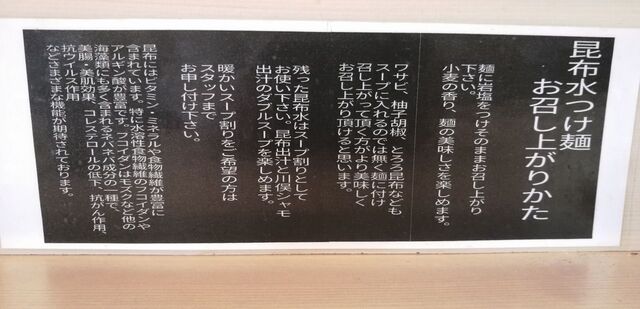 昆布水つけ麺
お召し上がりかた
麺に岩塩をつけそのままお召し上がり
下さい。
小麦の香り、麺の美味しさを楽しめます。
ワサビ、柚子胡椒、とろろ昆布なども
スープに入れるのでは無く麺に付け
召し上がって頂く方がより美味しく
お召し上がり頂けると思います。
残った昆布水はスープ割りとして
お使い下さい。昆布出汁と川俣シャモ
出汁のダブルスープを楽しめます。
暖かいスープ割りをご希望の方は
スタッフまで
お申し付け下さい。
昆布にはビタミン・ミネラルや食物繊維が豊富に
含まれています。特に水溶性食物繊維のフコイダンや
アルギン酸が豊富です。フコイダンはモズクなど他の
海藻類にも多く含まれるネバネバ成分の一種で、
美腸・美肌効果、コレステロールの低下、抗がん作用、
抗ウイルス作用
などさまざまな機能が期待されております。